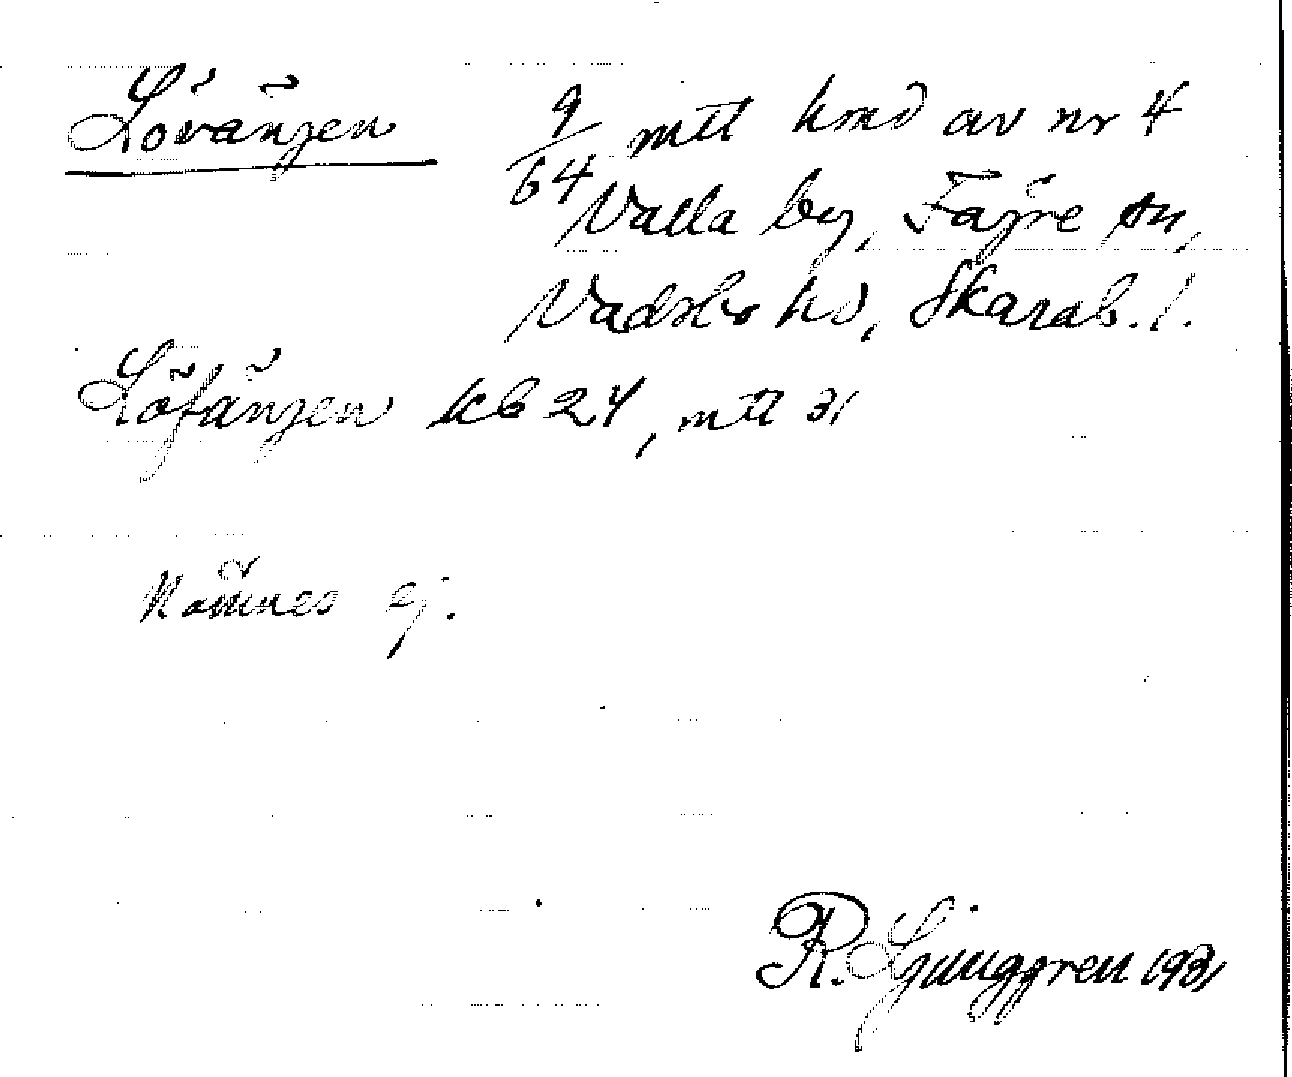 Lövängen 9/64 mtl kmd av nr 4
Valla by, Fägre sn,
Vadsbo hd, Skarab. l.
Löfängen kb 24, mtl 31
Nämnes ej.
R. Ljunggren 1931